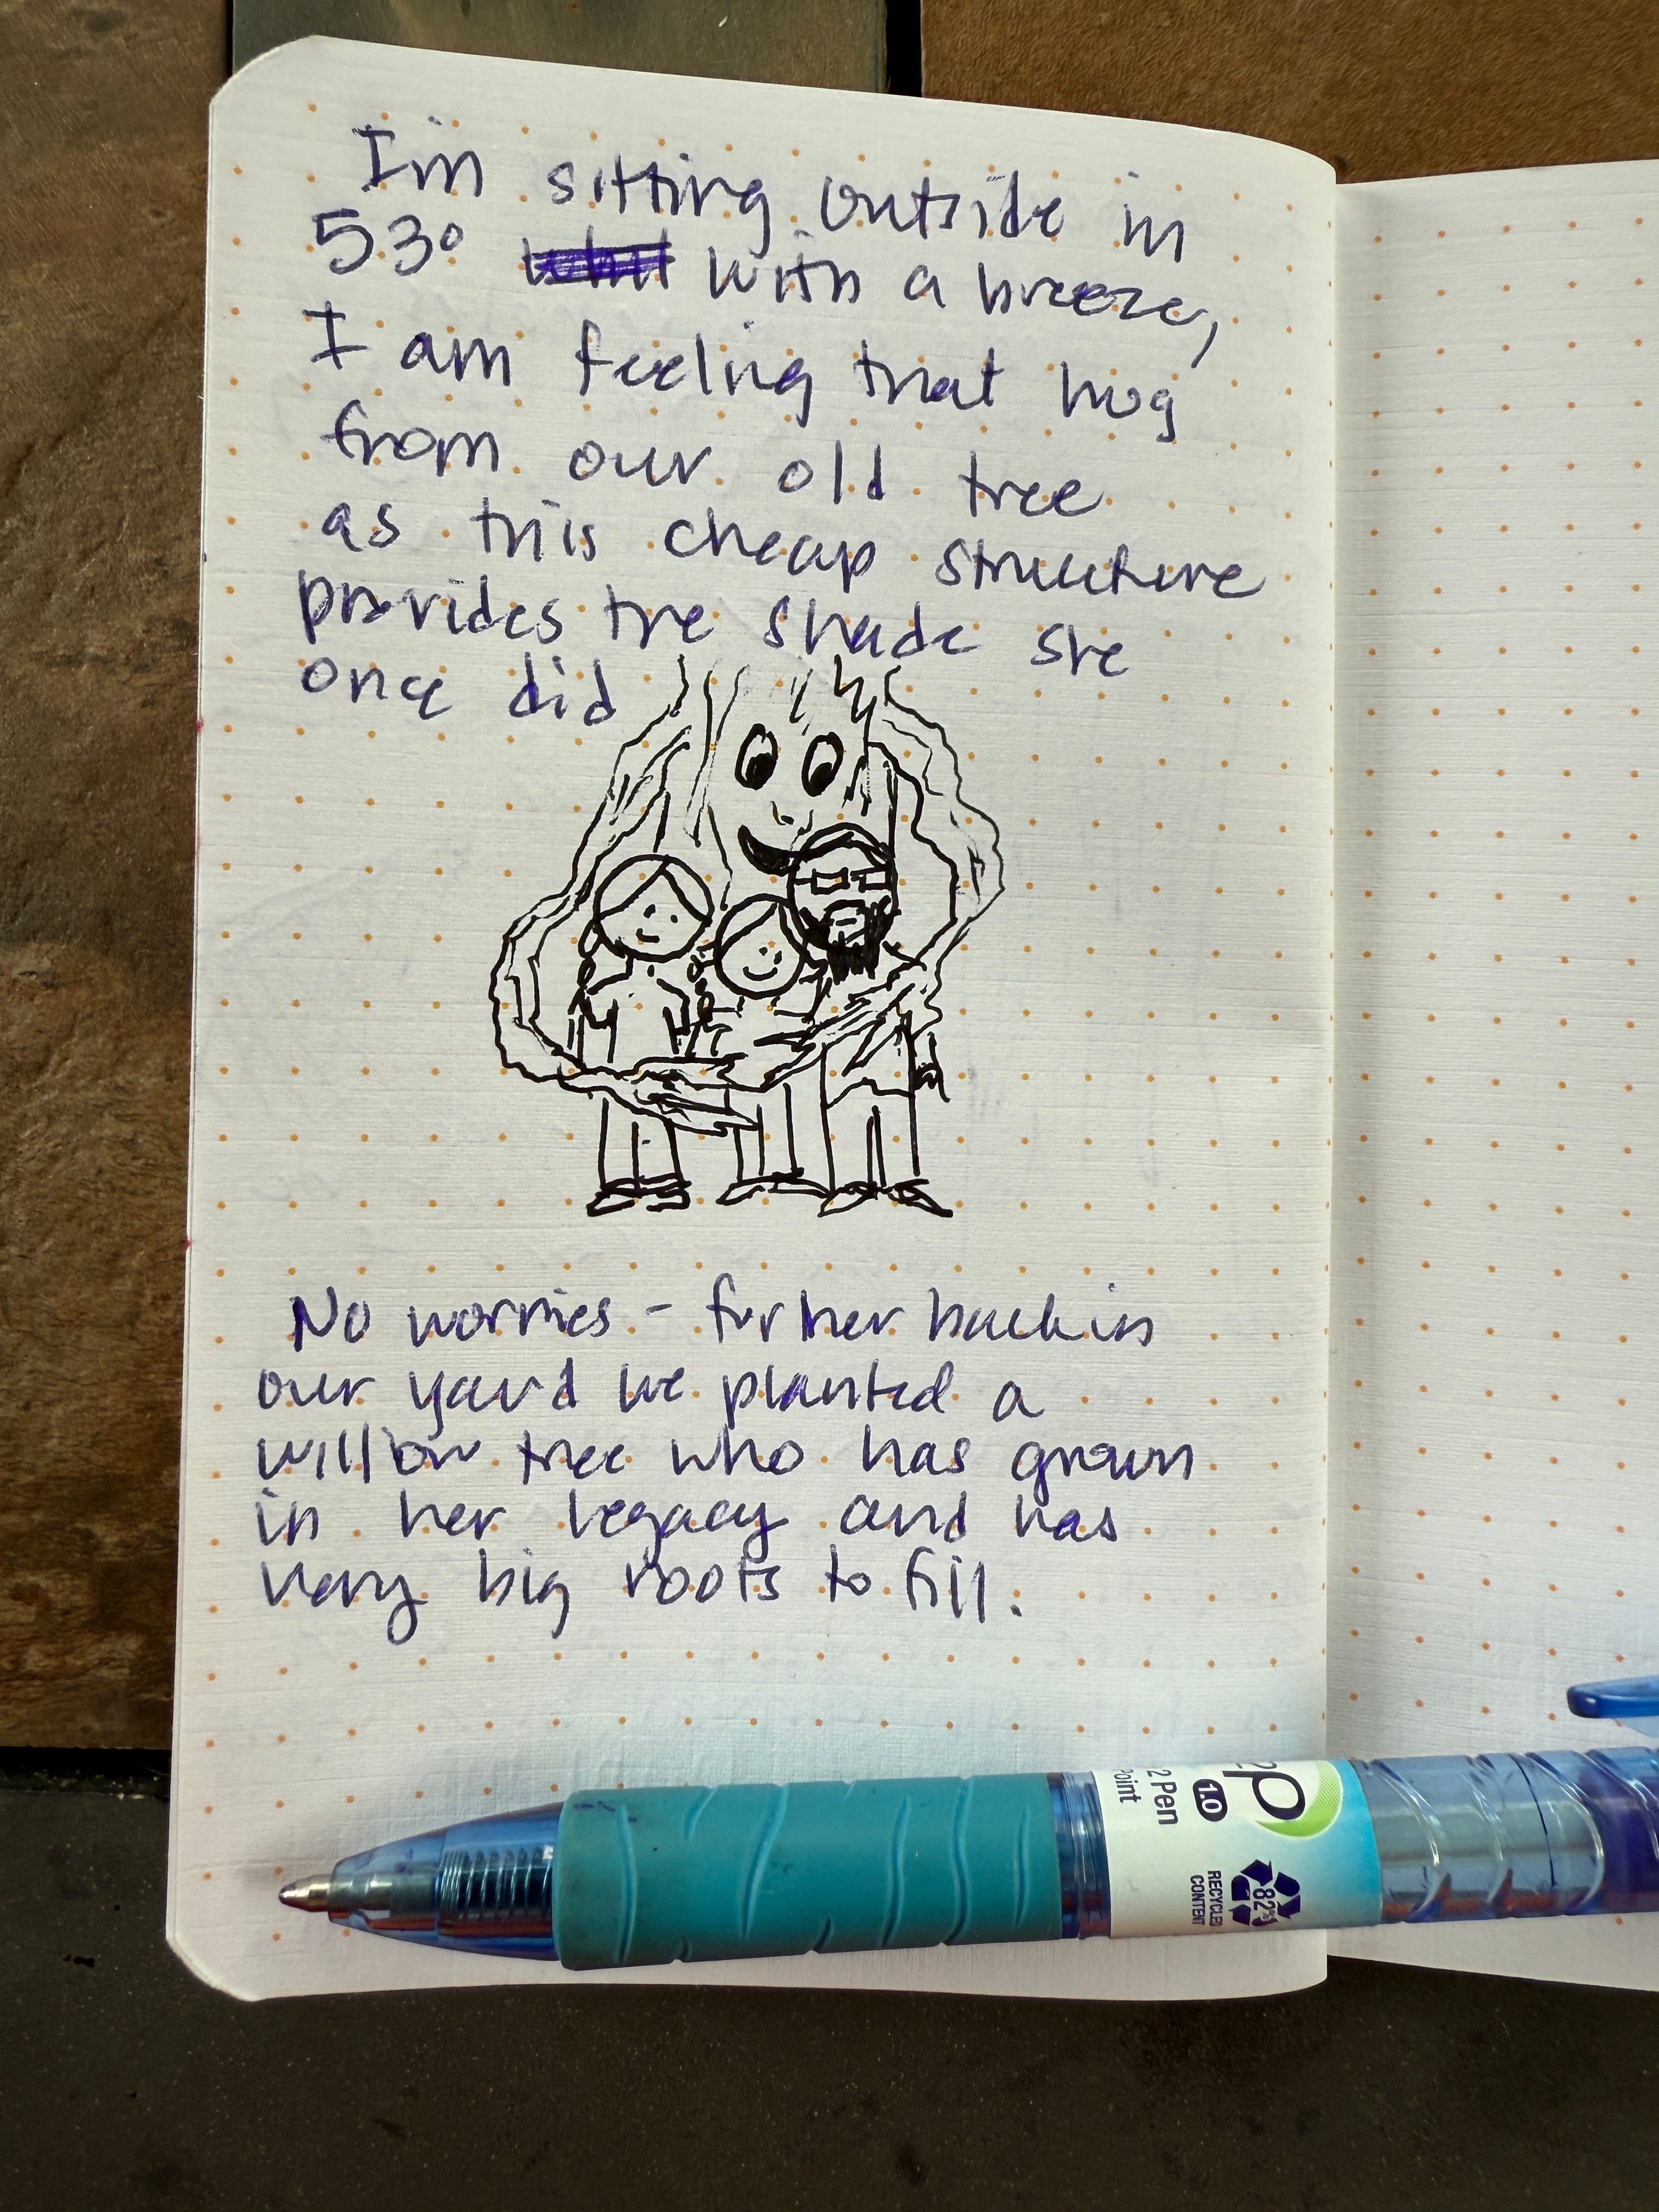 I'm sitting outside in
53° with a breeze,
I am feeling that hug
from our old tree
as this cheap structure
provides the shade she
once did
No worries - further back in
our yard we planted a
willow tree who has grown
in her legacy and has
very big roots to fill.
2P
2 Pen
Point
1.0
82%
RECYCLED
CONTENT